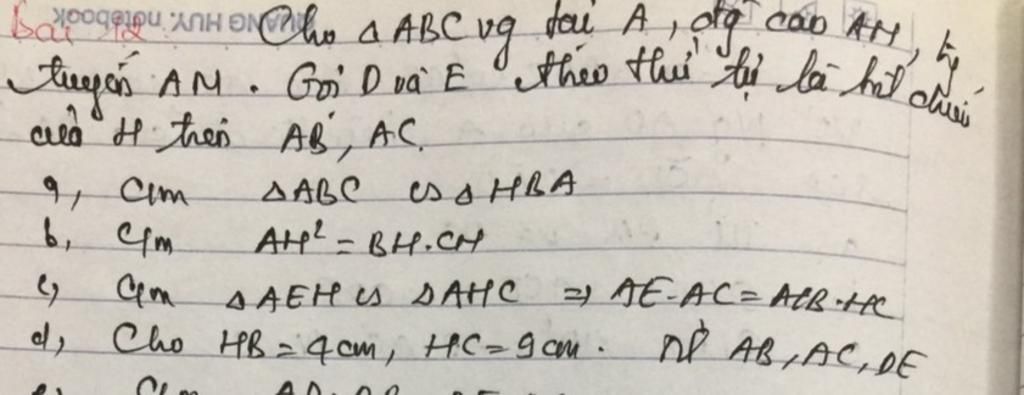 Bài 12 Cho △ABC vg tại A, đg cao AH,
tuyến AM. Gọi D và E theo thứ tự là hình chiếu
của H trên AB, AC.
a, C/m △ABC ∽ △HBA
b, C/m AH² = BH.CH
c, C/m △AEH ∽ △AHC ⇒ AE.AC = HB.HC
d, Cho HB = 4cm, HC = 9cm. AB, AC, DE